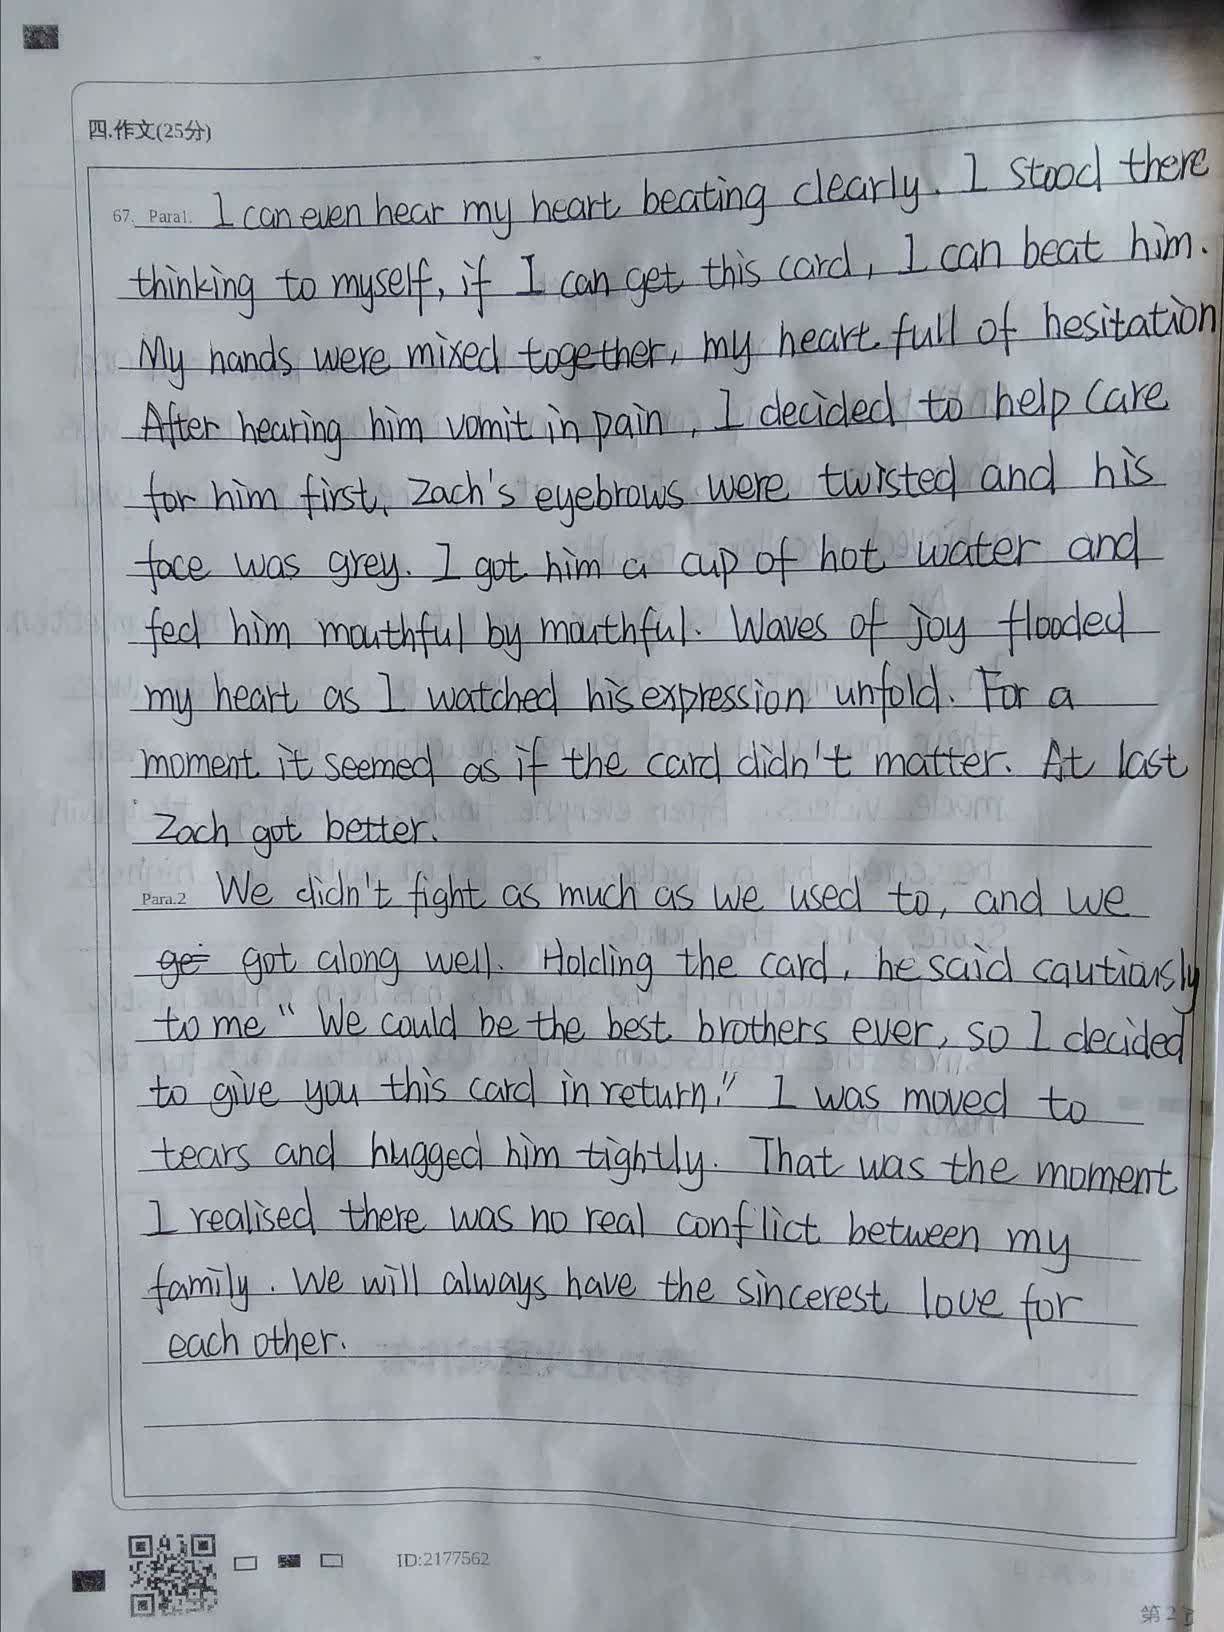 四.作文(25分)
67. Para1. I can even hear my heart beating clearly. I stood there
thinking to myself, if I can get this card, I can beat him.
My hands were mixed together, my heart full of hesitation
After hearing him vomit in pain, I decided to help care
for him first, Zach's eyebrows were twisted and his
face was grey. I got him a cup of hot water and
fed him mouthful by mouthful. Waves of joy flooded
my heart as I watched his expression unfold. For a
moment it seemed as if the card didn't matter. At last
Zach got better.
Para.2 We didn't fight as much as we used to, and we
ge got along well. Holding the card, he said cautiously
to me " We could be the best brothers ever, so I decided
to give you this card in return." I was moved to
tears and hugged him tightly. That was the moment
I realised there was no real conflict between my
family. We will always have the sincerest love for
each other.
ID:2177562
第2